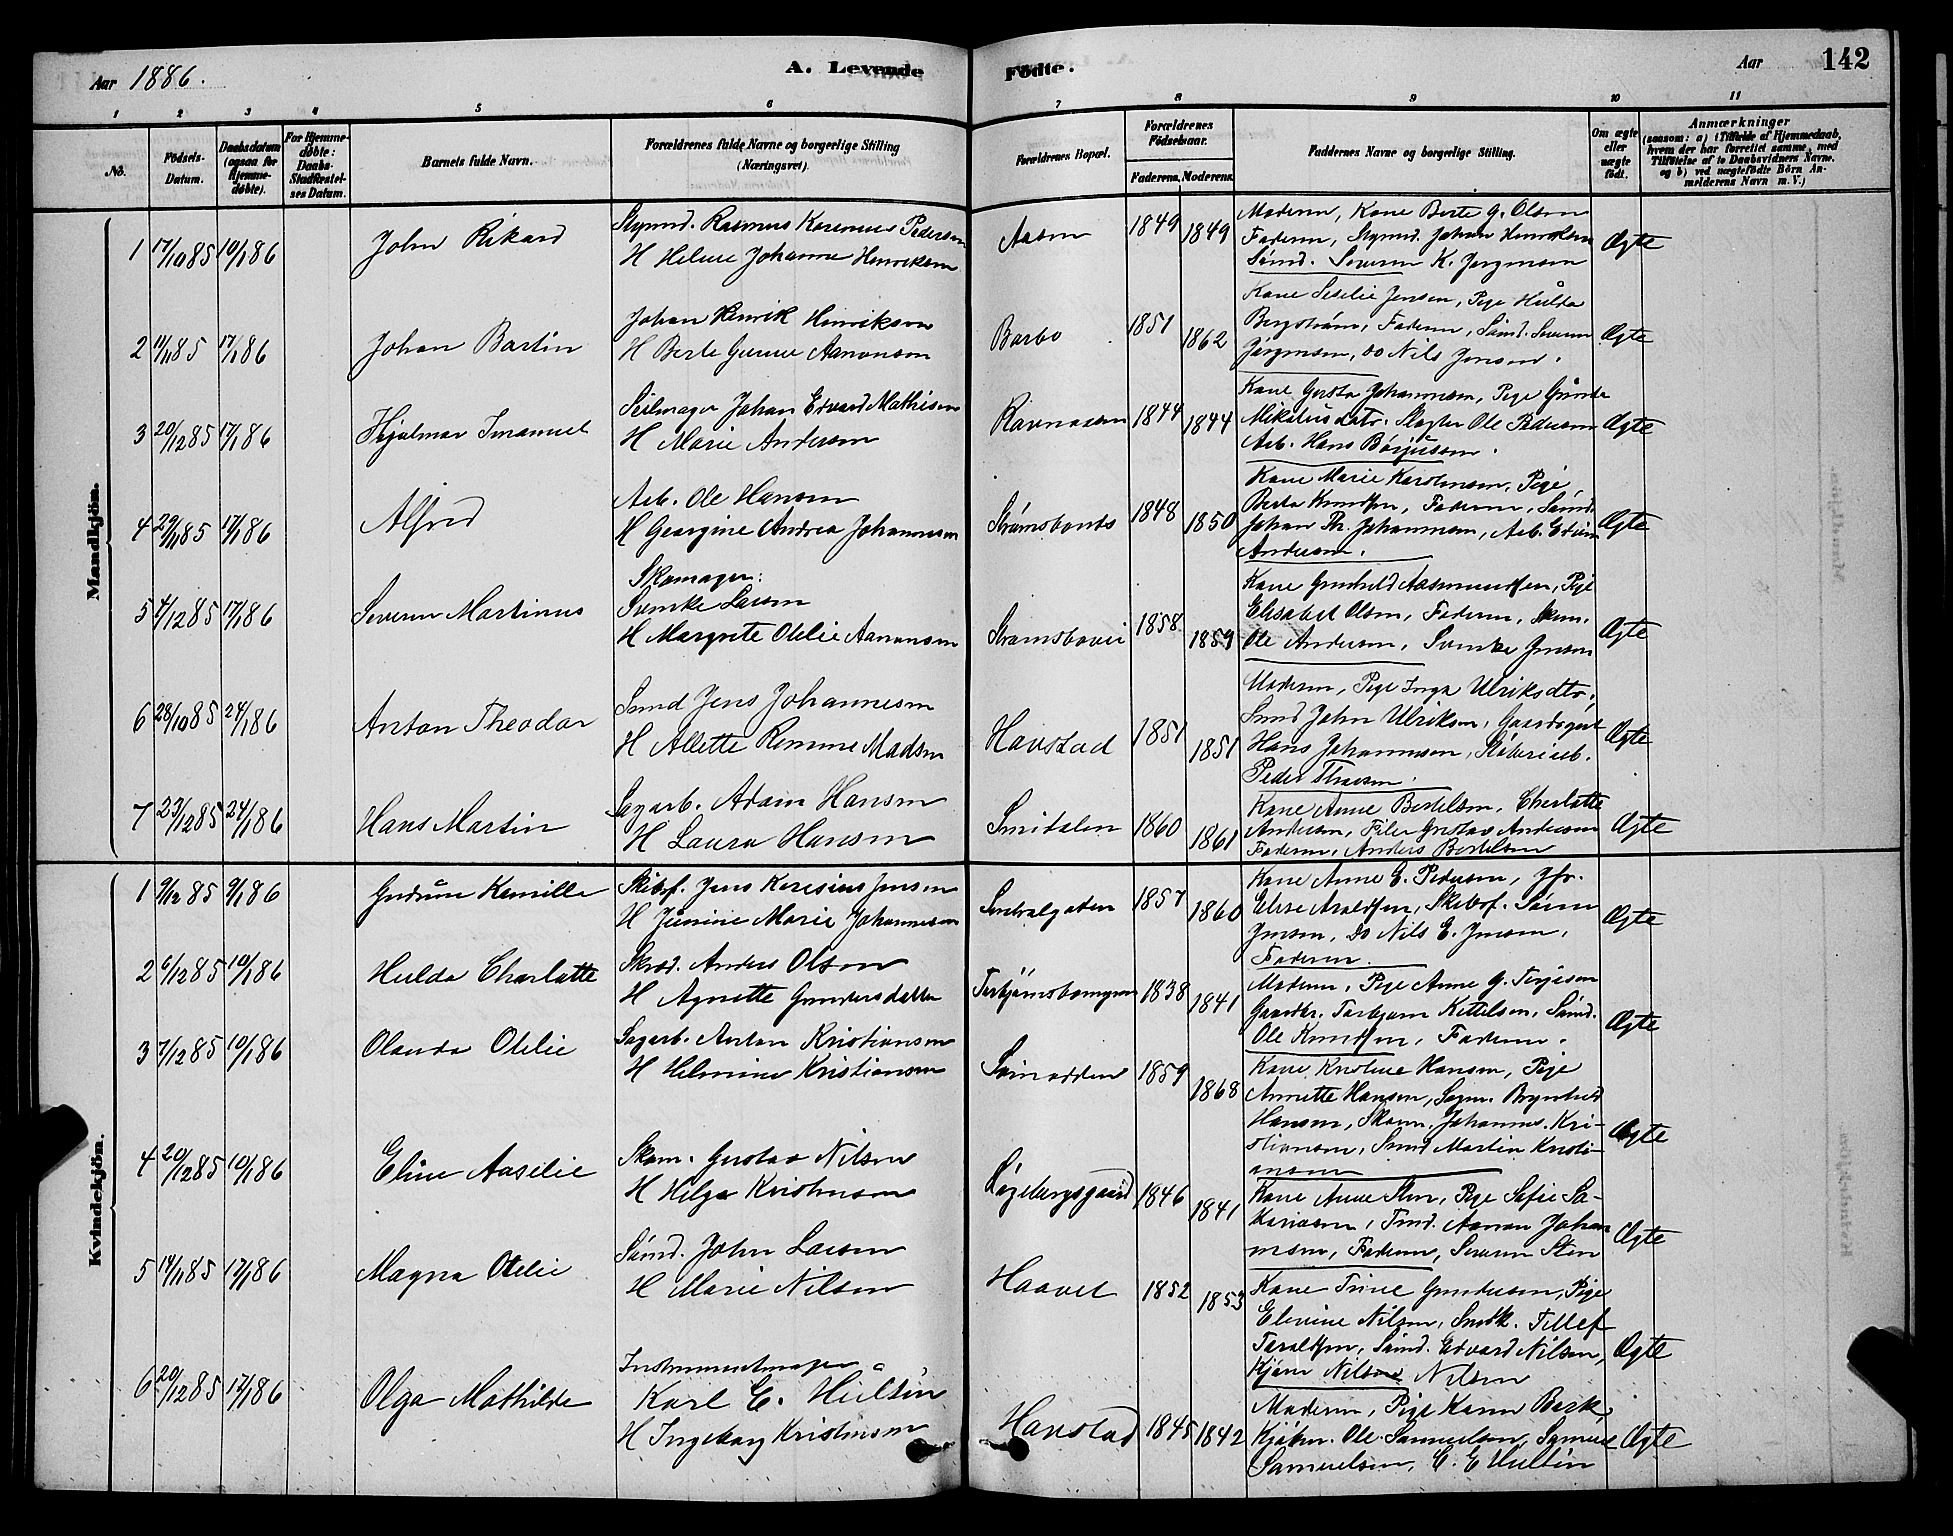 Aar 1886.
A. Levende
Fødte.
Aar
142
1 2 3 4 5 6 7 8 9 10 11
No.
Fødsels-Datum.
Daabsdatum (ogsaa for Hjemme-døbte).
For Hjemme-døbte: Daabs-Stadfæstel-ses Datum.
Barnets fulde Navn.
Forældrenes fulde Navne og borgerlige Stilling (Næringsvei).
Forældrenes Bopæl.
Forældrenes Fødselsaar.
Faderens. Moderens.
Faddernes Navne og borgerlige Stilling.
Om ægte eller uægte født.
Anmærkninger
(saasom: a) i Tilfælde af Hjemmedaab, hvem der har forrettet samme, med Tilføielse af to Daabsvidners Navne. og b) ved uægtefødte Børn An-melderens Navn m. V.)
Mandkjön.
1 17/10 85 10/1 86
John Rikard
Styrmd. Rasmus Karenius Pedersen
H Helene Johanne Henriksen
Aasen
1849 1849
Moderen, Kone Berte G. Olsen
Faderen, Styrmd. Johan Henriksen
Sømd. Severin K. Jørgensen
Ægte
2 11/11 85 17/1 86
Johan Bartin
Johan Henrik Henriksen
H Berte Gurine Aanonsen
Barbo
1851 1862
Kone Sesilie Jensen, Pige Hulda
Bergstrøm, Faderen, Sømd. Severin
Jørgensen, do Nils Jensen.
Ægte
3 20/12 85 17/1 86
Hjalmar Imanuel
Seilmager Johan Edvard Mathisen
H Marie Andersen
Ravnaasen
1844 1844
Kone Gusta Johannesen, Pige Gunda
Mikalusdatr. Slagter Ole Pedersen
Arb. Hans Børjusen.
Ægte
4 29/11 85 17/1 86
Alfred
Arb. Ole Hansen
H Georgine Andrea Johannesen
Strømsbonds
1848 1850
Kone Marie Karolinsen, Pige
Berta Knudsen, Faderen, Sømd.
Johan Th. Johannesen, Arb. Edvin
Andersen.
Ægte
5 4/12 85 17/1 86
Severin Martinus
Skomager:
Svenke Larsen
H Margrete Otelie Aanonsen
Strømsbovei
1858 1859
Kone Gunhild Aasmundsen, Pige
Elisabet Olsen, Faderen, Skom.
Ole Andersen, Svenke Jensen
Ægte
6 28/10 85 24/1 86
Anton Theodor
Smd Jens Johannesen
H Allette Remine Madsen
Havstad
1851 1851
Moderen, Pige Inga Ulriksdtr.
Smd John Ulriksen, Gaardsgut
Hans Johannesen, Støberiarb.
Peder Thorsen.
Ægte
7 23/12 85 24/1 86
Hans Martin
Sagarb. Adam Hansen
H Laura Hansen
Smidalen
1860 1861
Kone Anne Bertelsen, Charlotte
Andersen, Filer Gustav Andersen
Faderen, Anders Bertelsen
Ægte
Kvindekjön.
1 9/12 85 9/1 86
Gudrun Kamilla
Skibsf. Jens Keresius Jensen
H Junine Marie Johannesen
Sentralgaten
1857 1860
Kone Anne E. Pedersen, Jfr.
Elise Araldsen, Skibsf. Søren
Jensen, do Nils E. Jensen,
Faderen.
Ægte
2 6/12 85 10/1 86
Hulda Charlotte
Skræd. Anders Olsen
H Agnette Gundersdatter
1838 1841
Moderen, Pige Anne G. Terjesen
Gaardbr. Torbjørn Kittelsen, Sømd.
Ole Knudsen, Faderen.
Ægte
3 7/12 85 10/1 86
Olanda Otelie
Sagarb. Anton Kristiansen
H Helmine Kristiansen
1859 1868
Kone Kristine Hansen, Pige
Annette Hansen, Sagm. Brynhild
Hansen, Skom. Johannes Kri-
stiansen, Smd Martin Kristi-
ansen
Ægte
4 20/12 85 10/1 86
Eline Aaselie
Skom. Gustav Nilsen
H Helga Kristensen
Løgebergsgaard
1846 1841
Kone Anne Sten, Pige Sofie Sa-
kariasen, Tmd. Aanon Johan
nesen, Faderen, Severin Sten
Ægte
5 14/11 85 17/1 86
Magna Otelie
Sømd. John Larsen
H Marie Nilsen
Haavet
1852 1853
Kone Trine Gundersen, Pige
Elevine Nilsen, Snedk. Tellef
Taraldsen, Sømd. Edvard Nilsen,
Kjære Nilsen Nilsen
Ægte
6 20/12 85 17/1 86
Olga Mathilde
Instrumentmager
Karl E. Hultin
H Ingeborg Kristensen
Havstad
1845 1842
Moderen, Pige Karen Berk,
Kjøbm. Ole Samuelsen, Samuel
Samuelsen, C. E Hultin
Ægte